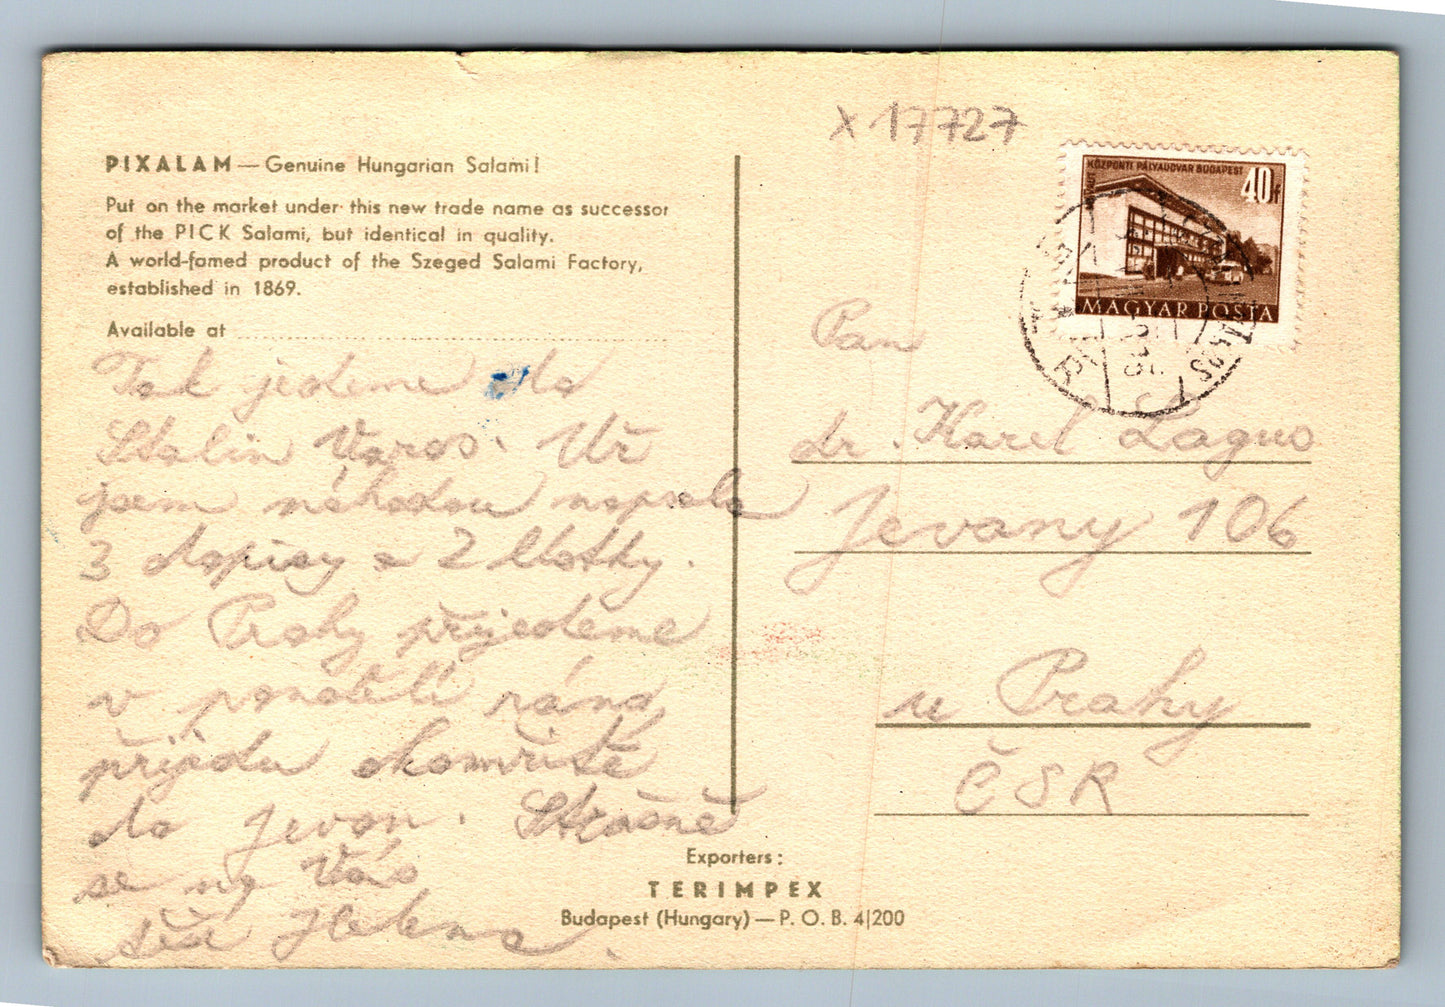 X 17727
PIXALAM — Genuine Hungarian Salami!
Put on the market under this new trade name as successor
of the PICK Salami, but identical in quality.
A world-famed product of the Szeged Salami Factory,
established in 1869.
Available at
Tak jedeme do
Stalin Varos. Už
jsem náhodou napsala
3 dopisy a 2 lístky.
Do Prahy přijedeme
v pondělí ráno,
přijedu okamžitě
do Jevan. Strašně
se na Vás
těší Helena.
KÖZPONTI PÁLYAUDVAR BUDAPEST
40f
MAGYAR POSTA
Pan
dr. Karel Laguo
Jevany 106
u Prahy
ČSR
Exporters:
TERIMPEX
Budapest (Hungary) — P. O. B. 4|200